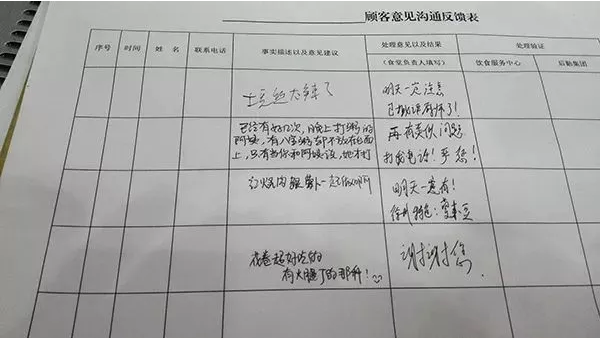 顾客意见沟通反馈表
序号 时间 姓名 联系电话 事实描述以及意见建议 处理意见以及结果 处理验证
(食堂负责人填写) 饮食服务中心 后勤集团
土豆丝太辣了
明天一定注意
已批评厨师了!
已经有好几次,晚上打粥的
阿姨,有八宝粥却不放在台面
上,只有当你和阿姨说,她才打
再有类似问题
打我电话!
红烧肉跟
一起做啊
明天一定有!
花卷超好吃的
有火腿丁的那种!
谢谢您